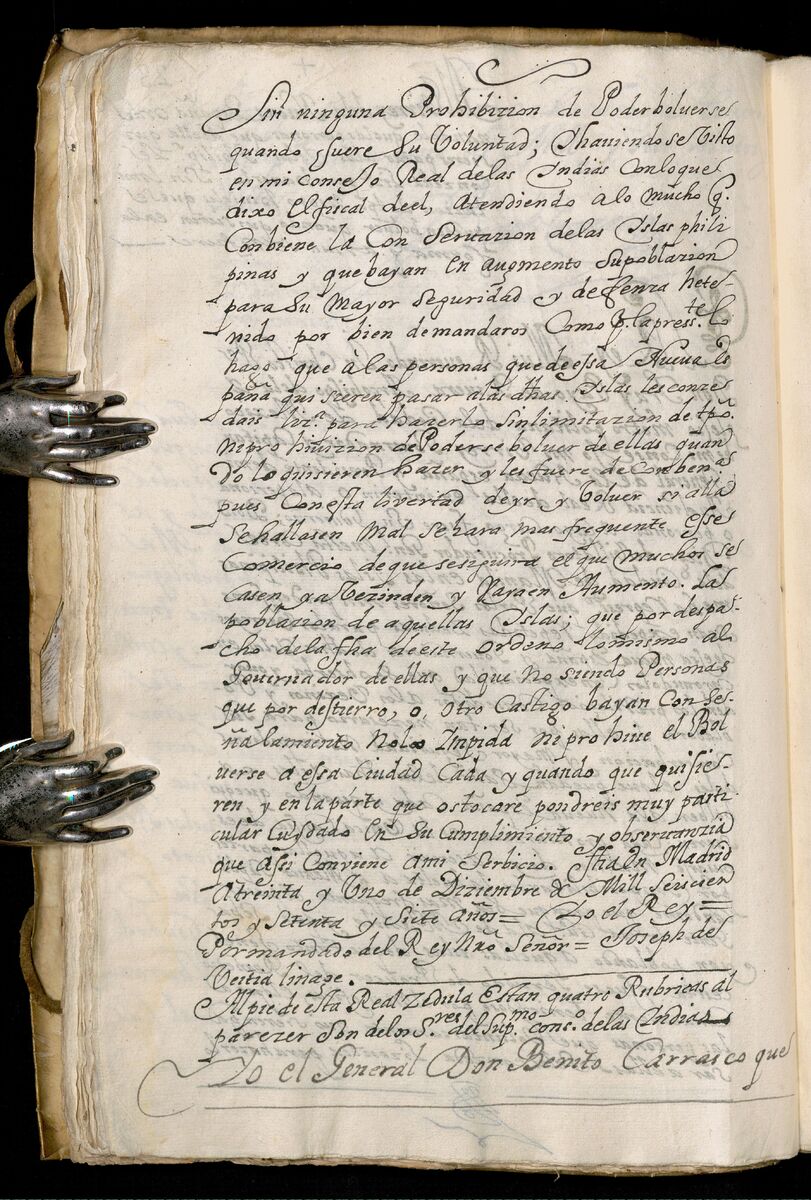 Sin ninguna Prohibizion de Poder bolverse
quando fuere Su Voluntad; Y haviendose Visto
en mi consejo Real de las Indias con lo que
dixo El fiscal deel, Atendiendo a lo mucho q.
Conbiene la Con Servazion de las Islas phili
pinas y que bayan En augmento Su poblazion
para Su Mayor Seguridad y defenza hete-
nido por bien demandaros Como p. la press.te lo
hago que à las personas que de essa Nueva Es
paña quisieren pasar a las dhas. Islas les conze
dais liz.a para hazerlo Sin limitazion de tpo.
ni prohivizion de Poderse bolver de ellas quan
do lo quisieren hazer y les fuere de Combena
pues Con esta livertad de yr y Volver si alla
Se hallasen Mal Se hara mas frequente esse
Comercio de que se siguira el que muchos se
Casen y a Vezinden y Vaya en Aumento. La
poblazion de aquellas Islas; que por despa-
cho de la fha de este Ordeno lo mismo al
Governador de ellas y que No siendo Personas
que por destierro, o, otro Castigo bayan Con Se-
ñalamiento No lo Impida ni pro hive el Bol
verse a essa Ciudad Cada y quando que quisie-
ren y en la parte que os tocare pondreis muy parti
cular Cuydado En Su Cumplimiento y observanzia
que Asi Conviene a mi Serbicio. fha En Madrid
a treinta y Uno de Diziembre de Mill Seiscien
tos y Setenta y Siete Años = Yo el Rey =
Por mandado del Rey Nro Señor = Joseph de
Veitia linage.
Al pie de esta Real Zedula Estan quatro Rubricas al
parezer Son de los S.res del Sup.mo cons.o de las Indias
Yo el General Don Benito Carrasco que